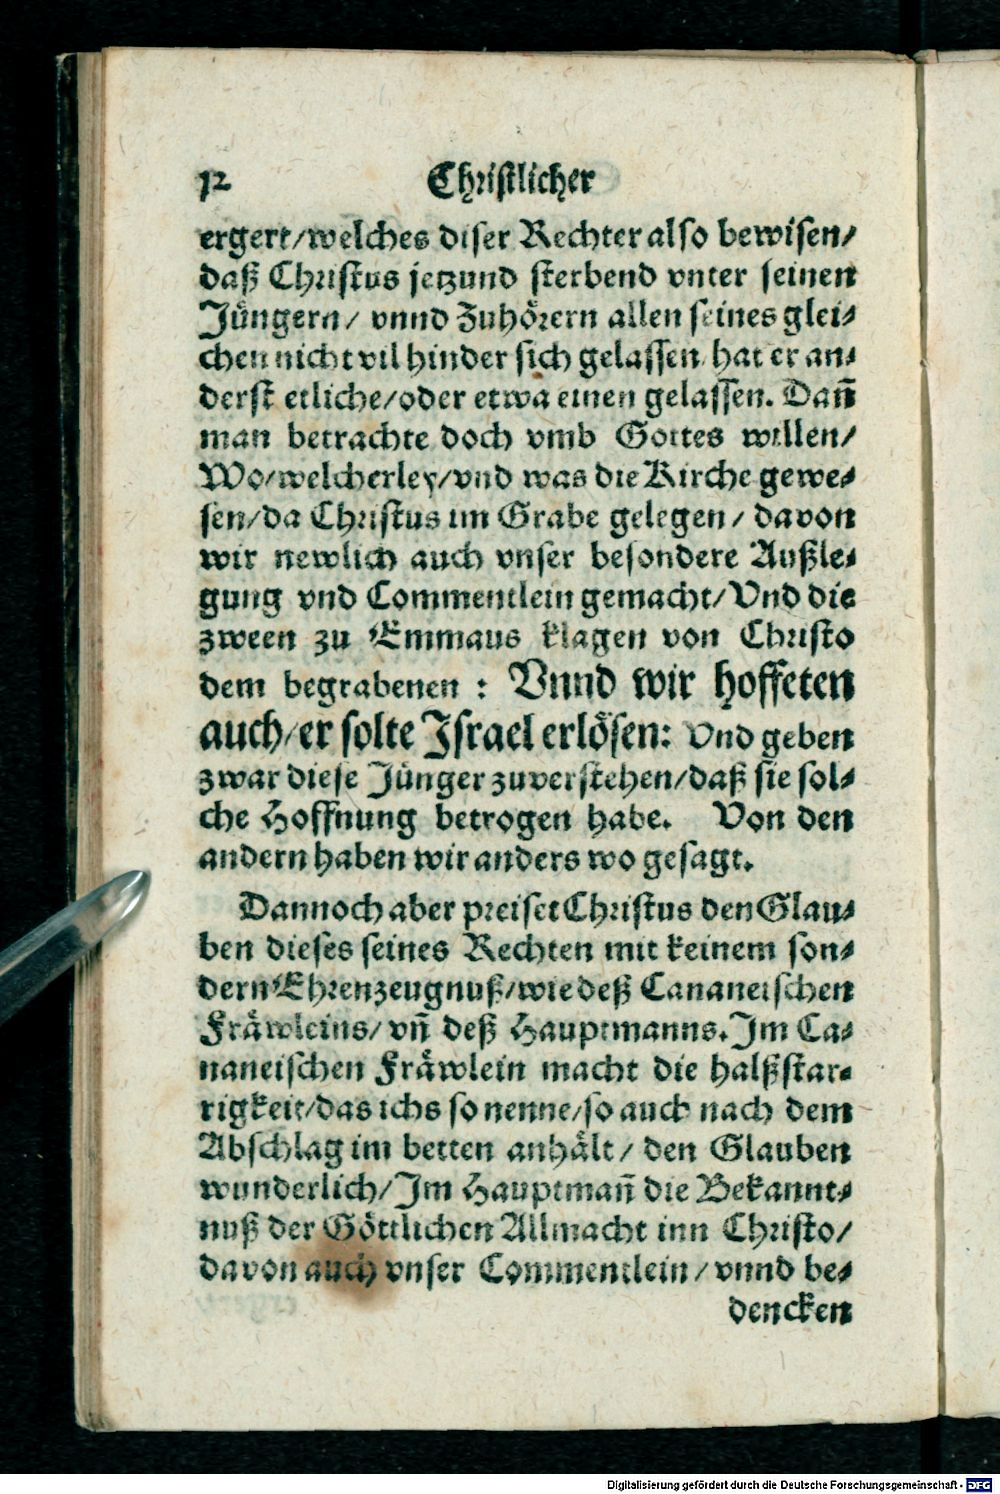 12 Christlicher
ergert/welches diser Rechter also bewisen/
daß Christus jetzund sterbend vnter seinen
Jüngern/ vnnd Zuhörern allen seines glei-
chen nicht vil hinder sich gelassen/ hat er an-
derst etliche/oder etwa einen gelassen. Dañ
man betrachte doch vmb Gottes willen/
Wo/welcherley/vnd was die Kirche gewe-
sen/da Christus im Grabe gelegen/ davon
wir newlich auch vnser besondere Außle-
gung vnd Commentlein gemacht/Vnd die
zween zu Emmaus klagen von Christo
dem begrabenen : Vnnd wir hoffeten
auch/er solte Israel erlösen: Vnd geben
zwar diese Jünger zuverstehen/daß sie sol-
che Hoffnung betrogen habe. Von den
andern haben wir anders wo gesagt.
Dannoch aber preiset Christus den Glau-
ben dieses seines Rechten mit keinem son-
dern Ehrenzeugnuß/wie deß Cananeischen
Fräwleins/ vñ deß Hauptmanns. Im Ca-
naneischen Fräwlein macht die halßstar-
rigkeit/das ichs so nenne/so auch nach dem
Abschlag im betten anhält/ den Glauben
wunderlich/Im Hauptmañ die Bekannt-
nuß der Göttlichen Allmacht inn Christo/
davon auch vnser Commentlein/ vnnd be-
dencken
Digitalisierung gefördert durch die Deutsche Forschungsgemeinschaft - DFG